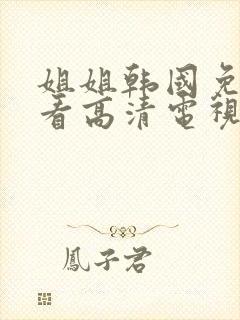 姐姐韩国免
看高清電視
鳳子君